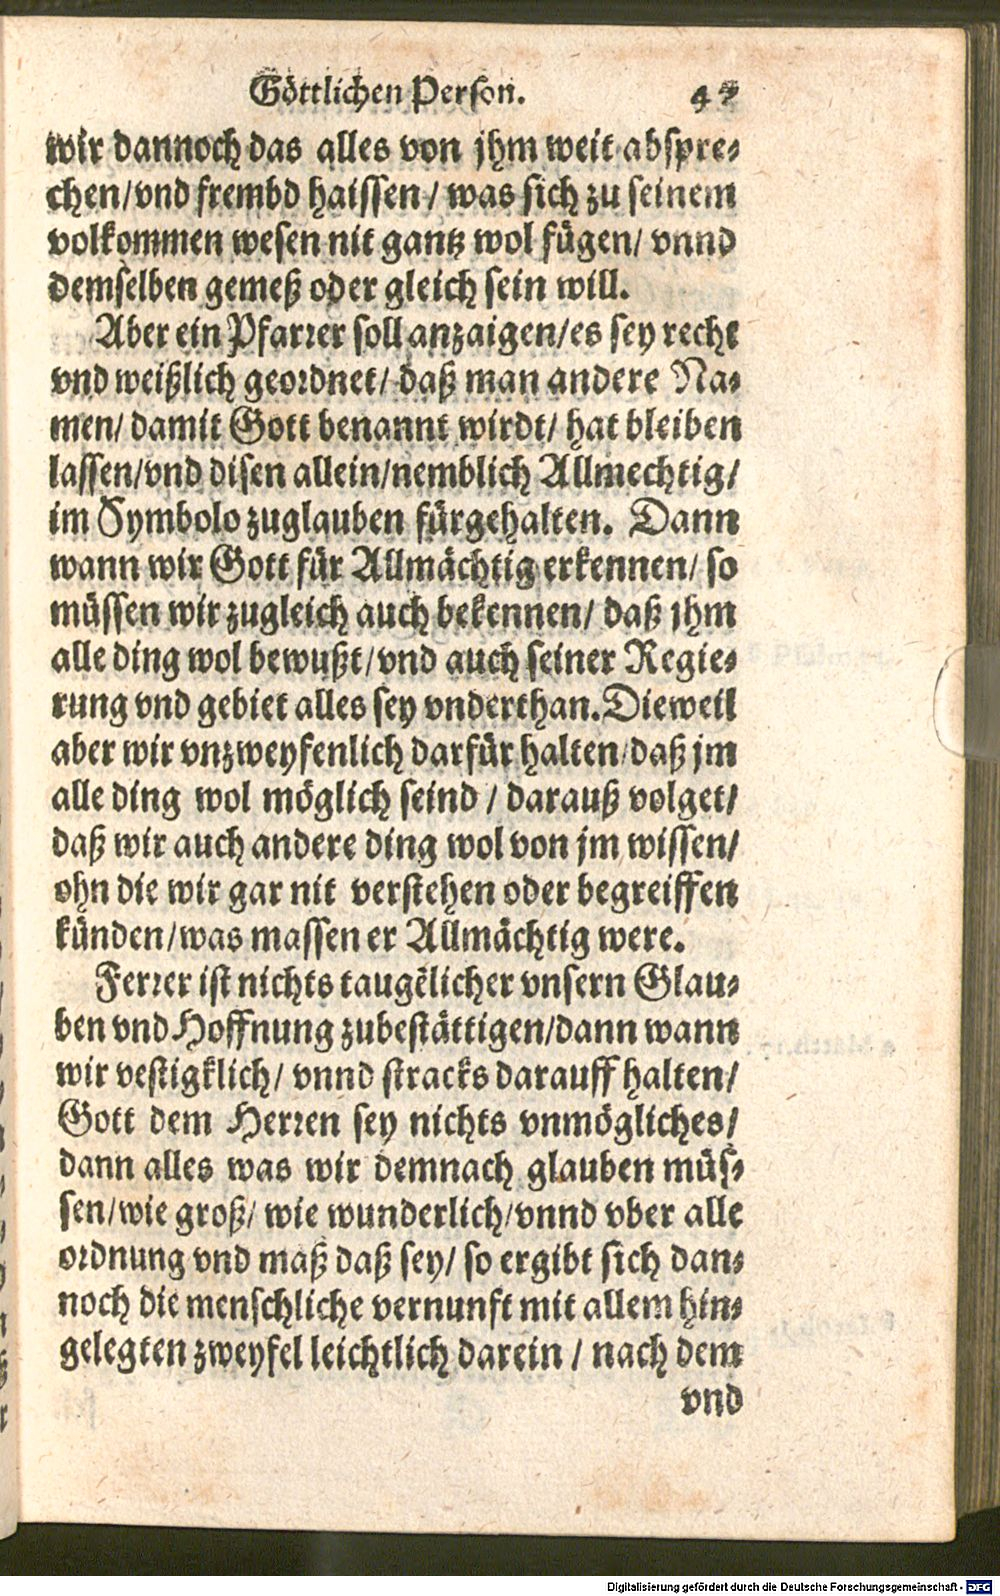 Göttlichen Person. 47
wir dannoch das alles von jhm weit abspre⸗
chen/vnd frembd haissen/ was sich zu seinem
volkommen wesen nit gantz wol fügen/ vnnd
demselben gemeß oder gleich sein will.
Aber ein Pfarrer soll anzaigen/es sey recht
vnd weißlich geordnet/ daß man andere Na⸗
men/ damit Gott benannt wirdt/ hat bleiben
lassen/vnd disen allein/nemblich Allmechtig/
im Symbolo zuglauben fürgehalten. Dann
wann wir Gott für Allmächtig erkennen/ so
müssen wir zugleich auch bekennen/ daß jhm
alle ding wol bewußt/vnd auch seiner Regie⸗
rung vnd gebiet alles sey vnderthan. Dieweil
aber wir vnzweyfenlich darfür halten/daß jm
alle ding wol möglich seind / darauß volget/
daß wir auch andere ding wol von jm wissen/
ohn die wir gar nit verstehen oder begreiffen
künden/was massen er Allmächtig were.
Ferrer ist nichts taugẽlicher vnsern Glau⸗
ben vnd Hoffnung zubestättigen/dann wann
wir vestigklich/ vnnd stracks darauff halten/
Gott dem Herren sey nichts vnmögliches/
dann alles was wir demnach glauben müs⸗
sen/wie groß/ wie wunderlich/vnnd vber alle
ordnung vnd maß daß sey/ so ergibt sich dan⸗
noch die menschliche vernunft mit allem hin⸗
gelegten zweyfel leichtlich darein / nach dem
vnd
Digitalisierung gefördert durch die Deutsche Forschungsgemeinschaft - DFG